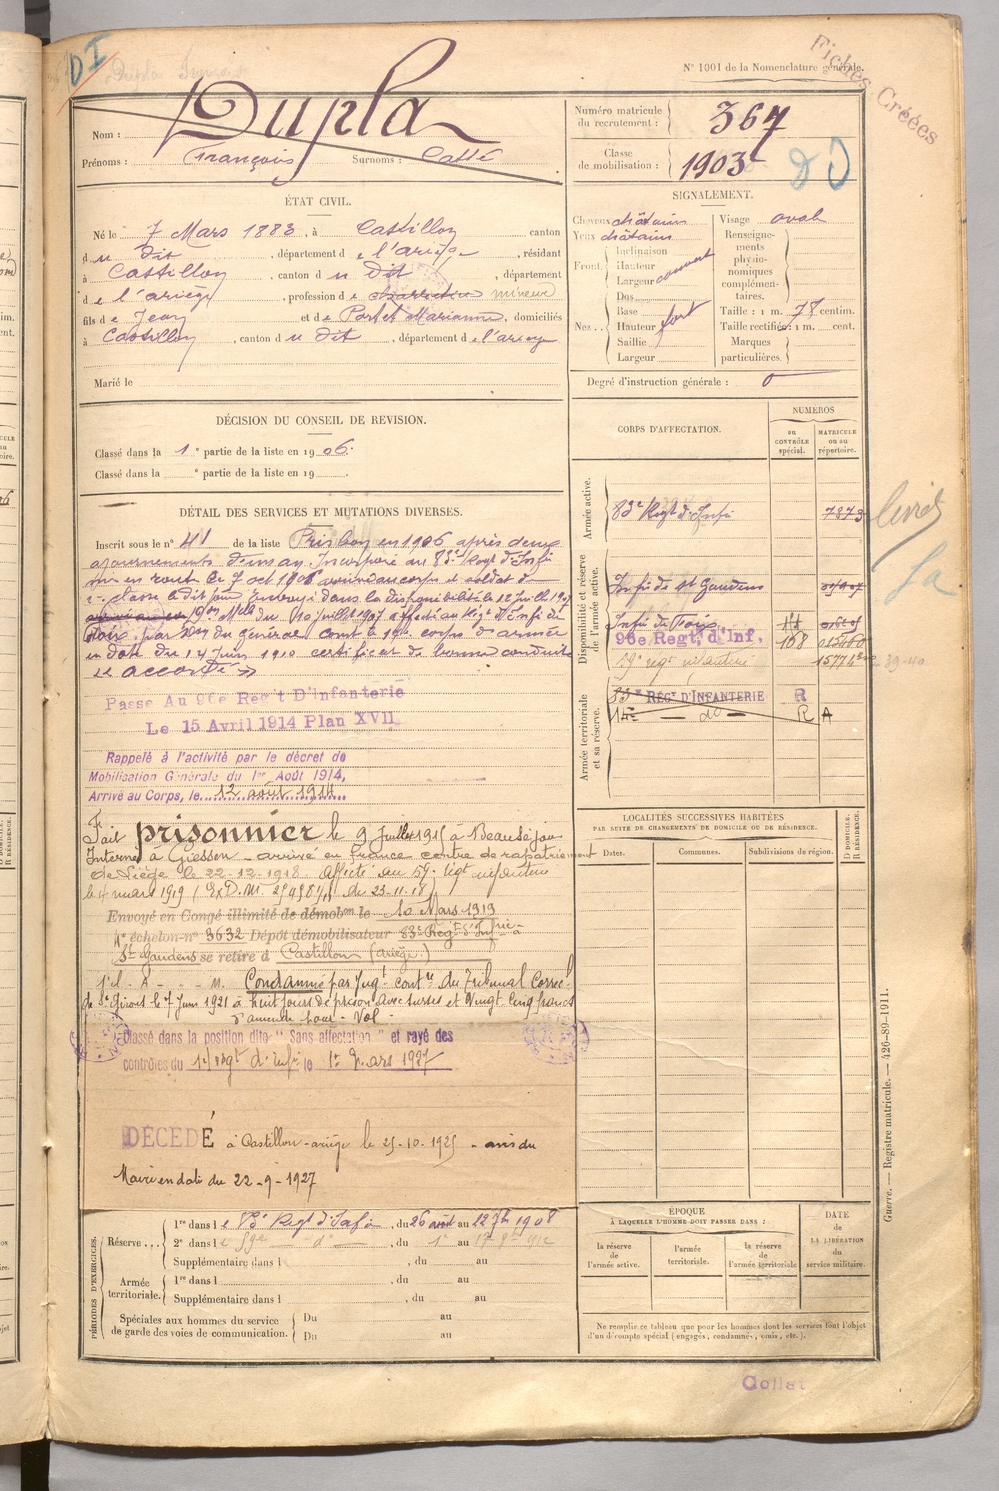 D I
Fiches Créées
N° 1001 de la Nomenclature générale.
Nom : Dupla
Prénoms : François Surnoms : Catté
Numéro matricule du recrutement : 367
Classe de mobilisation : 1903
ÉTAT CIVIL.
Né le 7 Mars 1883, à Castillon canton
du dit, département de l'ariège, résidant
à Castillon, canton du Dit, département
de l'ariège, profession de mineur
fils de Jean et de Portet Marianne, domiciliés
à Castillon, canton du dit, département de l'ariège
Marié le
SIGNALEMENT.
Cheveux châtains
Yeux châtains
Front. Inclinaison
Hauteur
Largeur couvert
Nez. Dos
Base
Hauteur fort
Saillie
Largeur
Visage oval
Renseignements physionomiques complémentaires.
Taille : 1 m. 75 centim.
Taille rectifiée : 1 m. cent.
Marques particulières.
Degré d'instruction générale : 0
DÉCISION DU CONSEIL DE REVISION.
Classé dans la 1e partie de la liste en 1906.
Classé dans la e partie de la liste en 19
DÉTAIL DES SERVICES ET MUTATIONS DIVERSES.
Inscrit sous le n° 41 de la liste Pris bon en 1906 après deux
ajournements d'un an. Incorporé au 83e Regt d'Infie
mis en route le 7 oct 1906 arrivé au corps et soldat de
2e classe le dit jour Envoyé dans la disponibilité le 12 Juillet 1907
du 10 juillet 1907 affecté au Régt d'Infie de
Foix, par Don du général comt le 17e corps d'armée
en date du 14 Juin 1910 certificat de bonne conduite
accordé
Passe Au 96e Reg't D'Infanterie
Le 15 Avril 1914 Plan XVII
Rappelé à l'activité par le décret de
Mobilisation Générale du 1er Août 1914,
Arrivé au Corps, le 12 août 1914
Fait prisonnier le 9 Juillet 1915 à Beauséjour
Interné à Giessen - arrivé en France centre de rapatriement
de Liège le 22-12-1918. Affecté au 59e regt infanterie
le 4 mars 1919 du 23-11-18
Envoyé en Congé illimité de démobon le 10 Mars 1919
4e échelon n° 3632 Dépôt démobilisateur 83e Reg d'Infrie à
St Gaudens se retire à Castillon (ariège)
Condamné par Jugt contre du Tribunal Correcl
de St Girons le 7 Juin 1921 à huit jours de prison avec sursis et vingt cinq francs
d'amende pour - Vol -
Classé dans la position dite "Sans affectation" et rayé des
contrôles du regt d'infie le 1er Mars 1927
DÉCÉDÉ à Castillon-ariège le 25-10-1925 - avis du
Maire en date du 22-9-1927
CORPS D'AFFECTATION.
NUMÉROS
au CONTRÔLE spécial.
MATRICULE ou au répertoire.
Armée active.
83e Regt d'Infie 7873
Disponibilité et réserve de l'armée active.
Infie de St Gaudens
Infie de Foix
96e Regt, d'Inf. 108
59e regt infanterie
Armée territoriale et sa réserve.
RÉGt D'INFANTERIE R
14e do R A
livret
39-40
LOCALITÉS SUCCESSIVES HABITÉES
PAR SUITE DE CHANGEMENTS DE DOMICILE OU DE RÉSIDENCE.
Dates. Communes. Subdivisions de région. D DOMICILE. R RÉSIDENCE.
PÉRIODES D'EXERCICES.
Réserve... 1re dans le 83e Regt d'Infie, du 26 août au 22 7bre 1908
2e dans le 59e do, du 1er au 17 1912
Supplémentaire dans l , du au
Armée territoriale. 1re dans l , du au
Supplémentaire dans l , du au
Spéciales aux hommes du service de garde des voies de communication. Du au
Du au
ÉPOQUE
À LAQUELLE L'HOMME DOIT PASSER DANS :
la réserve de l'armée active.
l'armée territoriale.
la réserve de l'armée territoriale
DATE de LA LIBÉRATION du service militaire.
Ne remplir ce tableau que pour les hommes dont les services font l'objet
d'un décompte spécial (engagés, condamnés, omis, etc.).
Guerre. — Registre matricule. — 426-89-1911.
Collat